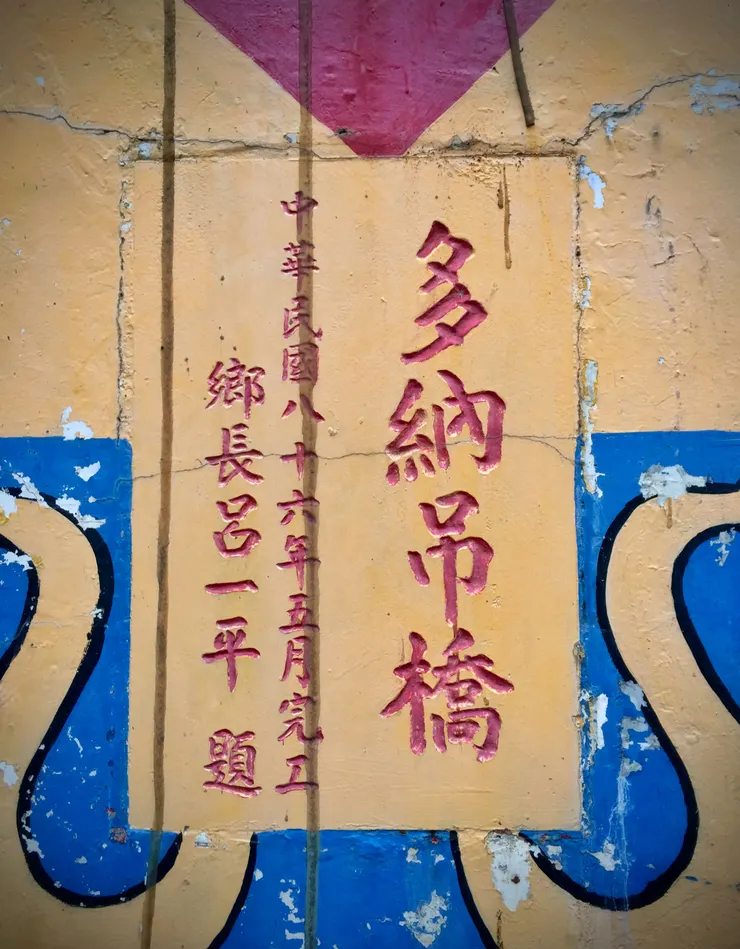 多納吊橋
中華民國八十六年五月完工
鄉長呂一平 題